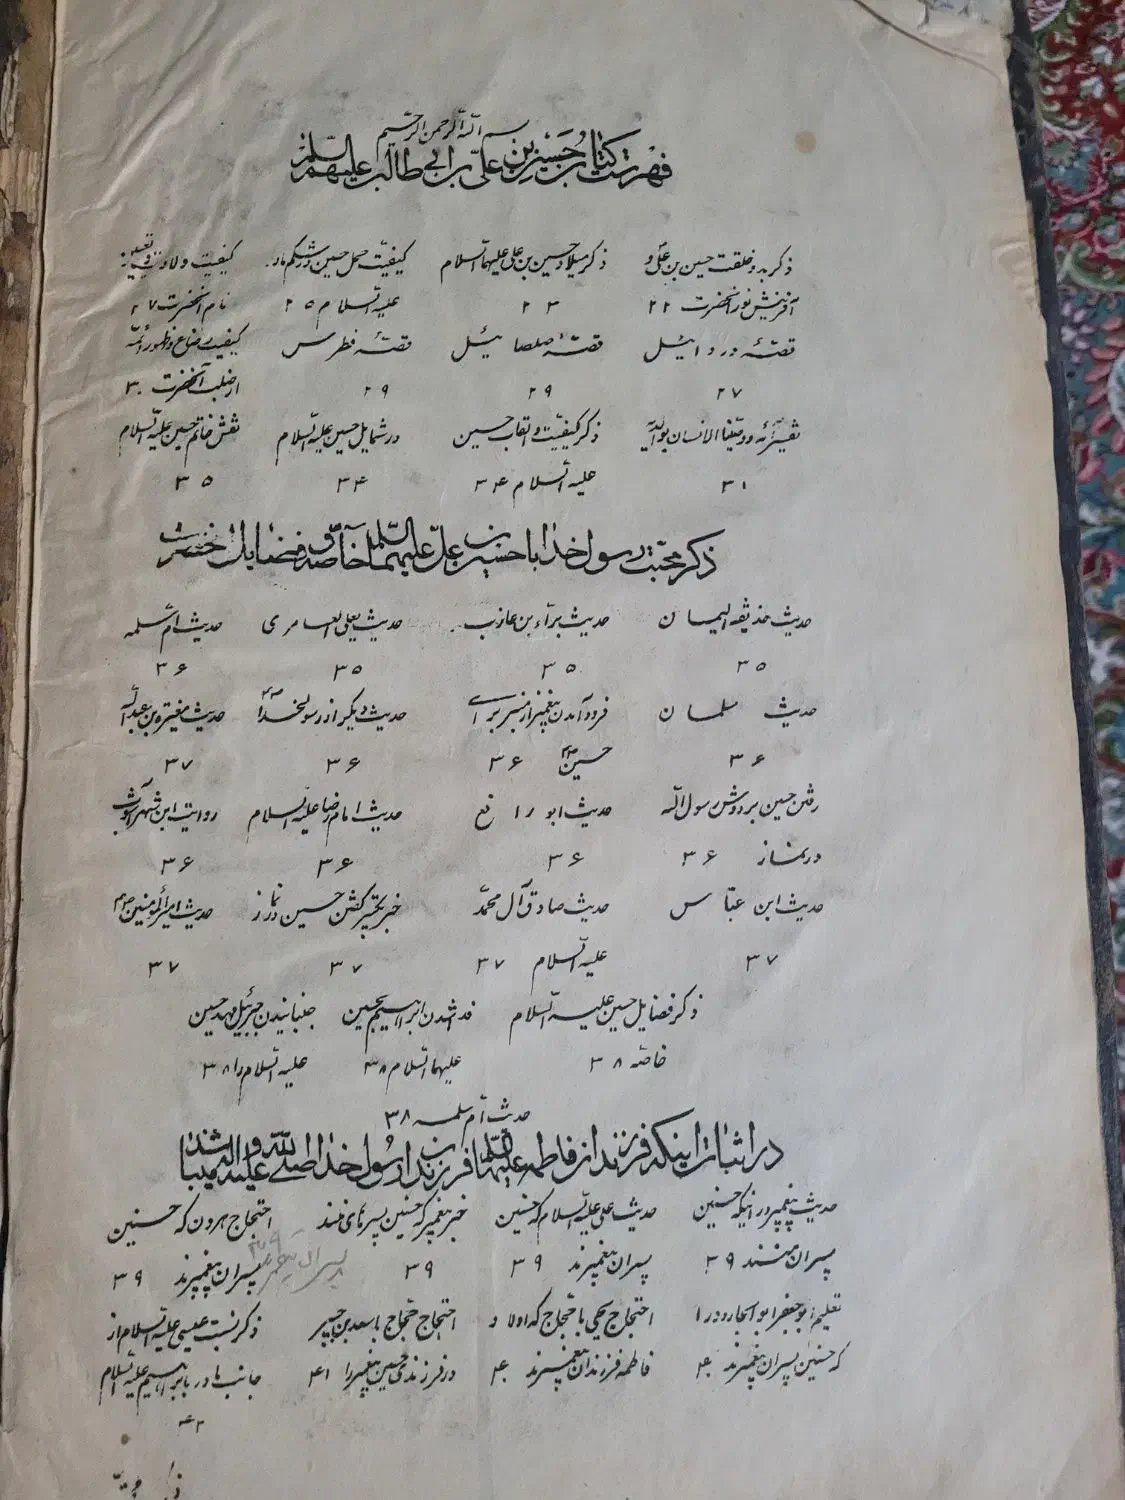 بسم الله الرحمن الرحیم
فهرست کتاب حسین بن علی بن ابی طالب علیهم السلم
ذکر بدو خلقت حسین بن علی و ذکر میلاد حسین بن علی علیهما السلام کیفیت حمل حسین در شکم مادر کیفیت ولادت و تعیین
آفرینش نور آنحضرت ۲۲ ۲۳ علیه السلام ۲۵ نام آنحضرت ۲۷
قصهٔ دردائیل قصهٔ صلصائیل قصهٔ فطرس کیفیت رضاع و ظهور ائمه
۲۷ ۲۹ ۲۹ از صلب آنحضرت ۳۰
تفسیر آیه و وصینا الانسان بوالدیه ذکر کیفیت و القاب حسین در شمایل حسین علیه السلام نقش خاتم حسین علیه السلام
۳۱ علیه السلام ۳۴ ۳۴ ۳۵
ذکر محبت رسول خدا با حسین بن علی علیهما السلم خاصه و فضایل آنحضرت
حدیث حذیفه الیمان حدیث براء بن عازب حدیث یعلی العامری حدیث ام سلمه
۳۵ ۳۵ ۳۵ ۳۶
حدیث سلمان فرود آمدن پیغمبر از منبر برای حدیث دیگر از رسولخدا حدیث مغیره بن عبدالله
۳۶ حسین ۳۶ ۳۶ ۳۷
رفتن حسین بر دوش رسول الله حدیث ابو رافع حدیث امام رضا علیه السلام روایت ابن شهر آشوب
در نماز ۳۶ ۳۶ ۳۶ ۳۶
حدیث ابن عباس حدیث صادق آل محمد خبر تکبیر گفتن حسین در نماز حدیث امیر المومنین
۳۷ علیه السلام ۳۷ ۳۷ ۳۷
ذکر فضایل حسین علیه السلام فدا شدن ابراهیم بحسین جنبانیدن جبرئیل مهد حسین
خاصه ۳۸ علیهما السلام ۳۸ علیه السلام را ۳۸
حدیث ام سلمه ۳۸
در اثبات اینکه فرزندان فاطمه علیها السلم فرزندان رسول خدا صلی الله علیه و اله میباشند
حدیث پیغمبر در اینکه حسنین حدیث علی علیه السلام که حسنین خبر پیغمبر که حسنین پسرهای منند احتجاج هرون که حسنین
پسران منند ۳۹ پسران پیغمبرند ۳۹ ۳۹ پسران پیغمبرند ۳۹
تعلیم ابو جعفر ابو الجارود را احتجاج یحیی با حجاج که اولاد احتجاج حجاج با سعید بن جبیر ذکر نسبت عیسی علیه السلام از
که حسنین پسران پیغمبرند ۴۰ فاطمه فرزندان پیغمبرند ۴۰ در فرزندی حسین پیغمبر را ۴۱ جانب مادر بابراهیم علیه السلام
۴۲